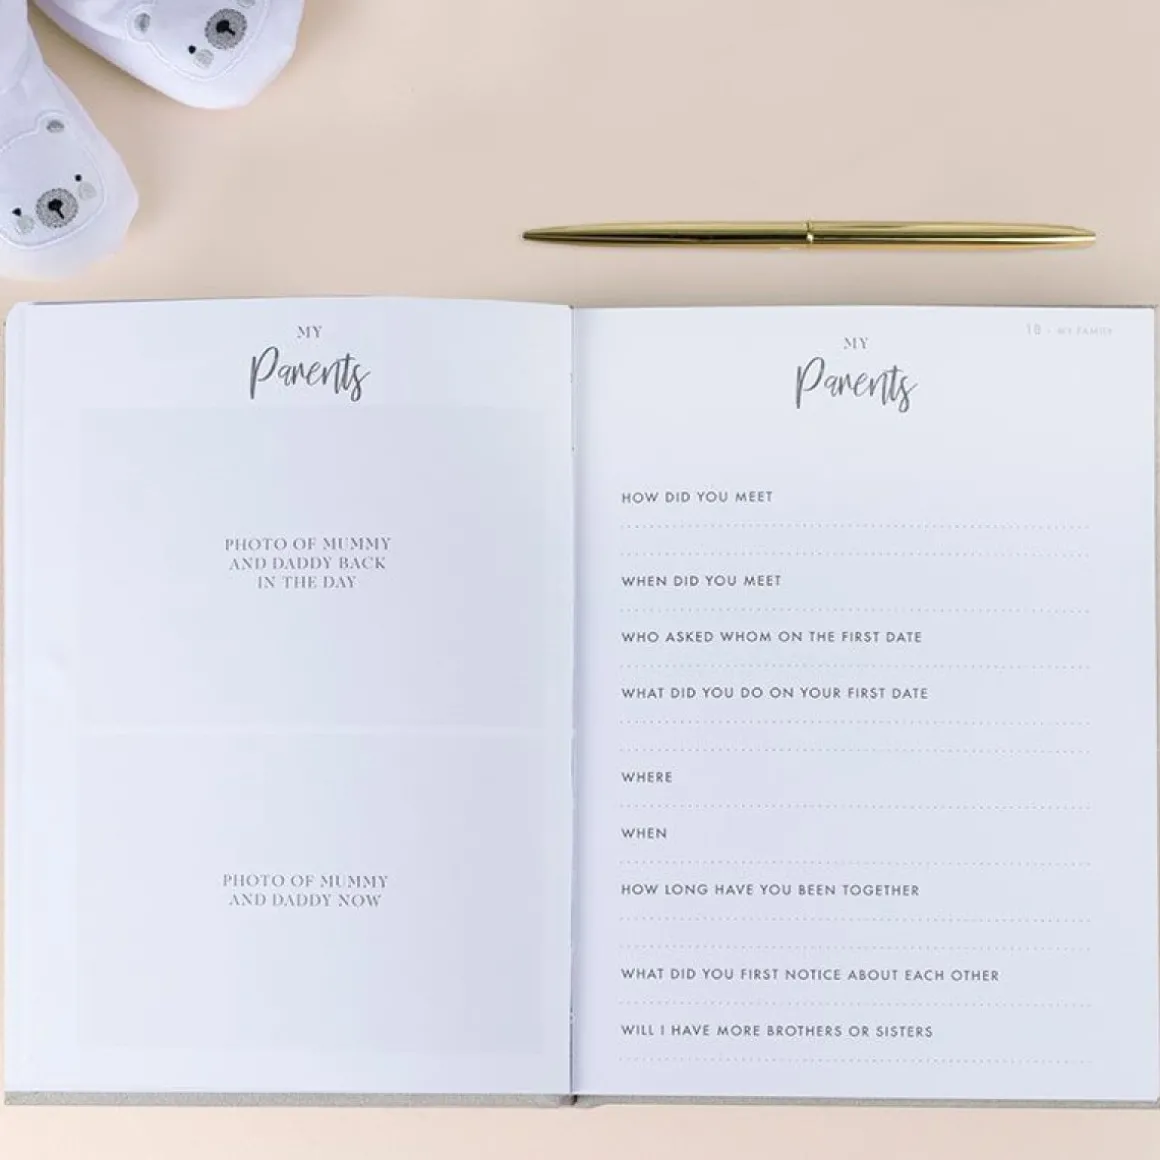 MY
Parents
PHOTO OF MUMMY
AND DADDY BACK
IN THE DAY
PHOTO OF MUMMY
AND DADDY NOW
18 - MY FAMILY
MY
Parents
HOW DID YOU MEET
WHEN DID YOU MEET
WHO ASKED WHOM ON THE FIRST DATE
WHAT DID YOU DO ON YOUR FIRST DATE
WHERE
WHEN
HOW LONG HAVE YOU BEEN TOGETHER
WHAT DID YOU FIRST NOTICE ABOUT EACH OTHER
WILL I HAVE MORE BROTHERS OR SISTERS